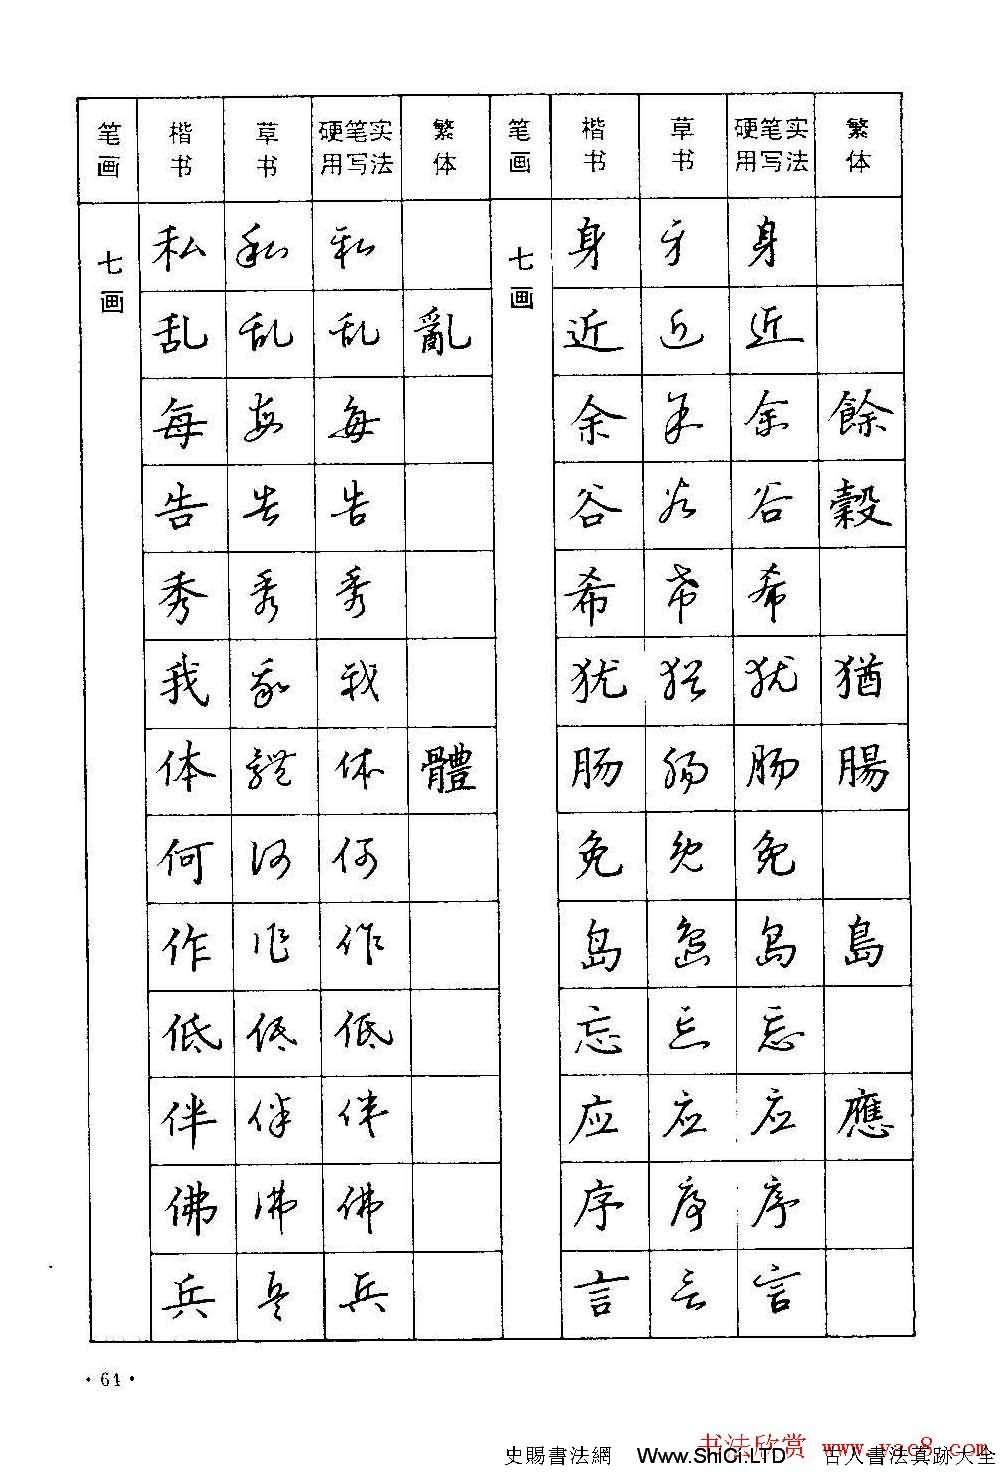 笔画 楷书 草书 硬笔实用写法 繁体 笔画 楷书 草书 硬笔实用写法 繁体
七画 私 私 私 七画 身 身 身
乱 乱 乱 亂 近 近 近
每 每 每 余 余 余 餘
告 告 告 谷 谷 谷 穀
秀 秀 秀 希 希 希
我 我 我 犹 犹 犹 猶
体 体 体 體 肠 肠 肠 腸
何 何 何 免 免 免
作 作 作 岛 岛 岛 島
低 低 低 忘 忘 忘
伴 伴 伴 应 应 应 應
佛 佛 佛 序 序 序
兵 兵 兵 言 言 言
·64·
书法欣赏 www.yac8.com
史賜書法網 Www.ShiCi.LTD 古人書法真跡大全